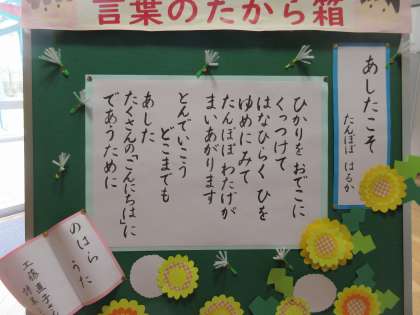 言葉のたから箱
あしたこそ
たんぽぽ はるか
ひかりを おでこに
くっつけて
はなひらく ひを
ゆめにみて
たんぽぽ わたげが
まいあがります
とんでいこう
どこまでも
あした
たくさんの「こんにちは」に
であうために
のはら
うた
工藤直子